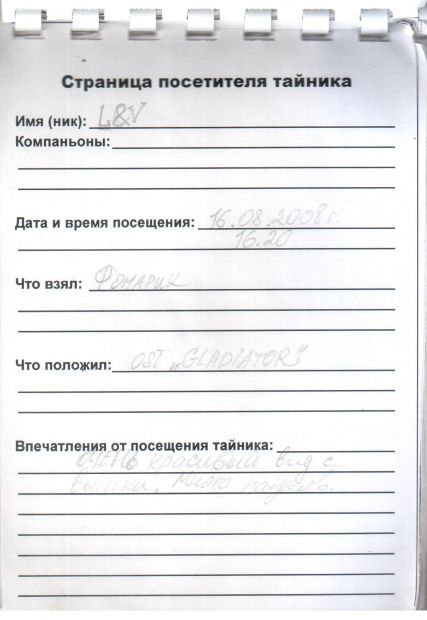 Страница посетителя тайника
Имя (ник): L&V
Компаньоны:
Дата и время посещения: 16.08.2008 г.
16.20
Что взял: Фонарик
Что положил: OST „GLADIATOR“
Впечатления от посещения тайника:
ОЧЕНЬ красивый вид с
вышки. Много пауков.